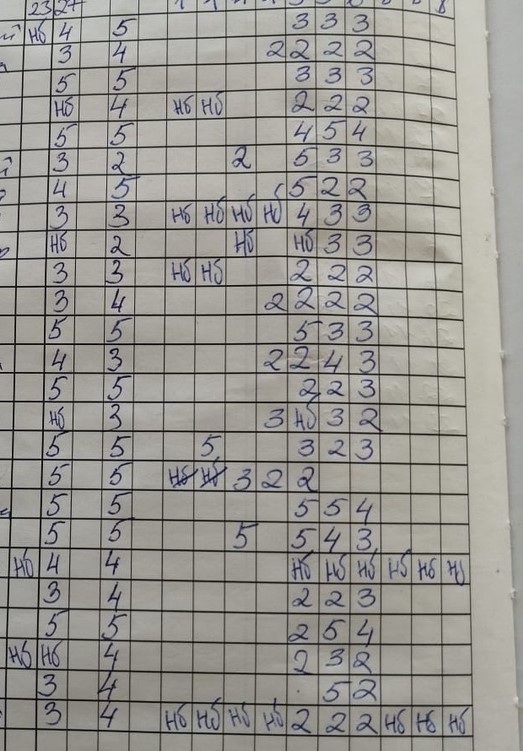 2327
й нб 4 5 3 3 3
3 4 2 2 2 2
5 5 3 3 3
нб 4 нб нб 2 2 2
5 5 4 5 4
й 3 2 2 5 3 3
4 5 5 2 2
3 3 нб нб нб нб 4 3 3
нб 2 нб нб 3 3
3 3 нб нб 2 2 2
3 4 2 2 2 2
5 5 5 3 3
4 3 2 2 4 3
5 5 2 2 3
нб 3 3 нб 3 2
5 5 5 3 2 3
5 5 нб нб 3 2 2
5 5 5 5 4
5 5 5 5 4 3
нб 4 4 нб нб нб нб нб нб
3 4 2 2 3
5 5 2 5 4
нб нб 4 2 3 2
3 4 5 2
3 4 нб нб нб нб 2 2 2 нб нб нб